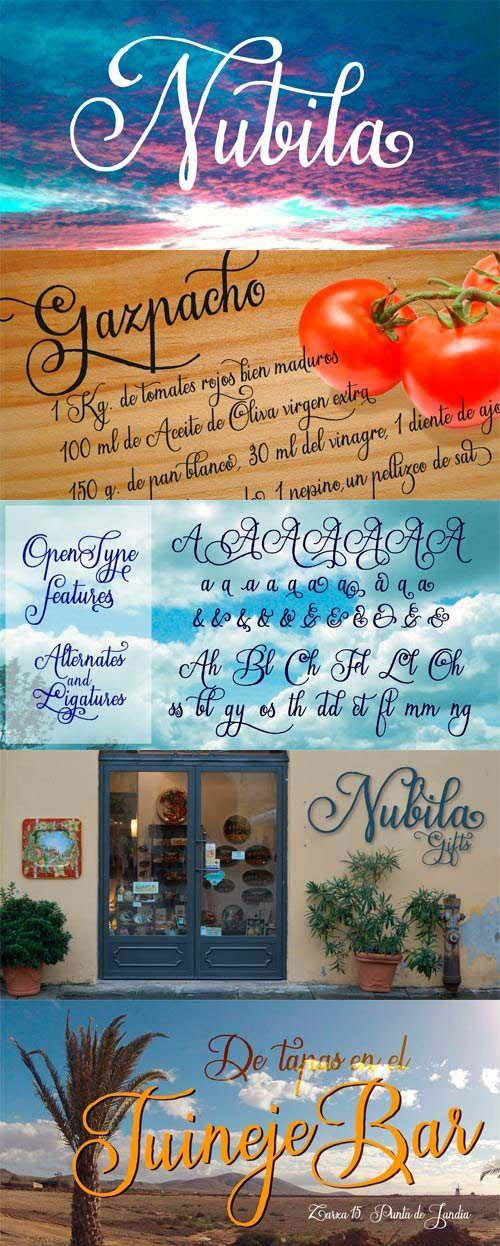 Nubila
Gazpacho
1 Kg. de tomates rojos bien maduros
100 ml de Aceite de Oliva virgen extra
150 g. de pan blanco, 30 ml del vinagre, 1 diente de ajo
1 pepino, un pellizco de sal
OpenType
features
A A A A A A A
a a a a a a a a a a
& & & & & & & & & &
Alternates
and
Ligatures
Ah Bl Ch Fl Ll Oh
ss bl gy os th dd et fl mm ng
Nubila
Gifts
De tapas en el
Tuineje Bar
15, Punta de Jandia